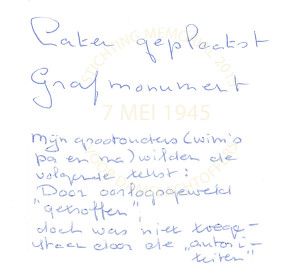 Later geplaatst
Grafmonument
7 MEI 1945
Mijn grootouders (wim's
pa en ma) wilden de
volgende tekst:
Door oorlogsgeweld
"getroffen",
doch was niet toege-
staan door de "autori-
teiten"